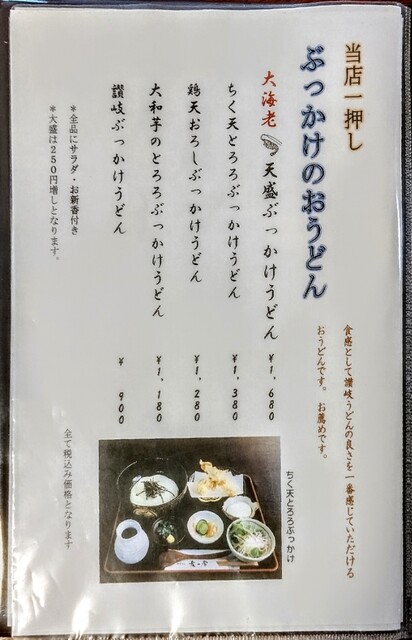 当店一押し
ぶっかけのおうどん
食感として讃岐うどんの良さを一番感じていただける
おうどんです。 お薦めです。
大海老 天盛ぶっかけうどん ¥1,680
ちく天とろろぶっかけうどん ¥1,380
鶏天おろしぶっかけうどん ¥1,280
大和芋のとろろぶっかけうどん ¥1,180
讃岐ぶっかけうどん ¥ 900
*全品にサラダ・お新香付き
*大盛は250円増しとなります。
ちく天とろろぶっかけ
全て税込み価格となります